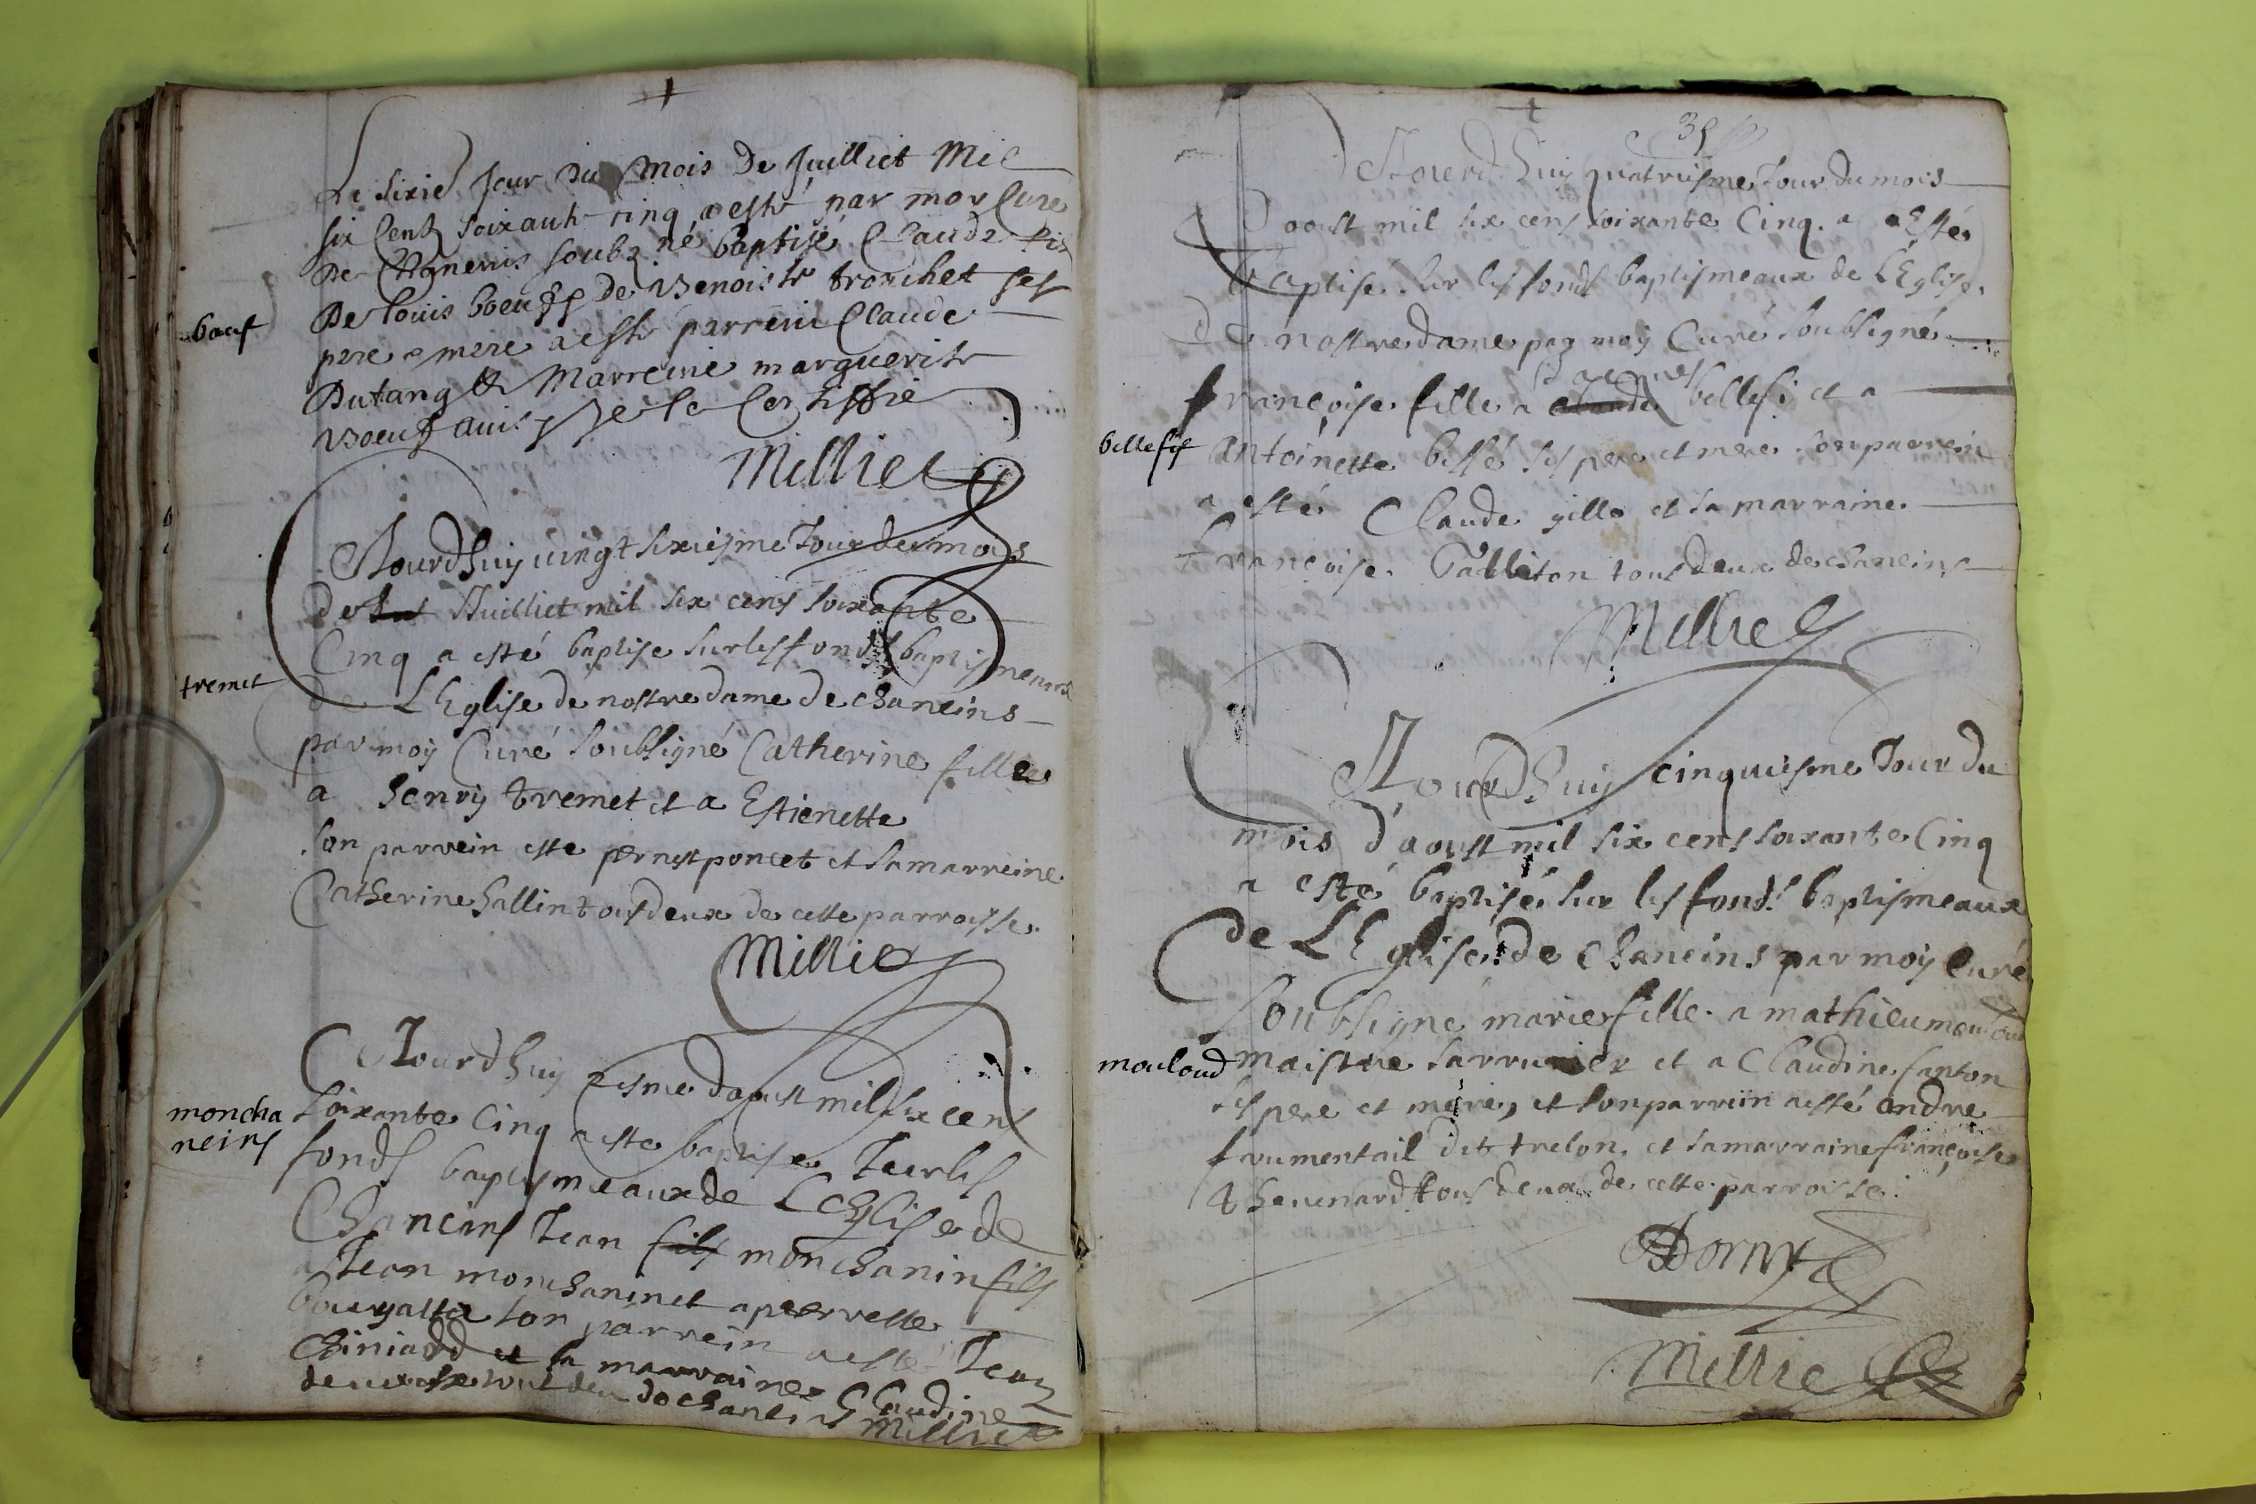 Le sixie Jour du Mois de Juilliet Mil
six Cent soixante cinq a esté par moy Curé
De Chaneins soubz.né baptisé Claude fis
De louis boeuf & de Benoiste tronchet ses
boeuf
pere & mere a esté parrein Claude
Dutang & Marreine marguerite
Boeuf ainsy Je le Certiffie
Milliet
AJourdhuy uingt sixiesme Jour du mois
de Juilliet mil six cens soixante
Cinq a esté baptise sur les fonds baptismeaux
tremet
de LEglise de nostre dame de chaneins
par moy Curé soubsigné Catherine fille
a henry tremet et a Estienette
son parrein este pernest poncet et sa marreine
Catherine hallin tous deux de cette parroisse
Millie
AJourdhuy daoust mil six cens
soixante Cinq a este baptise sur les
moncha
neins
fonds baptismeaux de LEglise de
Chaneins Jean fils monchanin fils
a Jean monchanin et a perrette
son parrein a este Jean
Chiniard et sa marraine Claudine
de chaneins Millie
35
AJourdhuy quatriesme Jour du mois
Daoust mil six cens soixante Cinq a Esté
baptisé sur les fonds baptismeaux de LEglise
de nostre dame par moy Curé soubsigné
francoise fille a claude bellefi et a
bellefis
antoinette bessé ses pere et mere son parrein
a esté Claude gille et sa marraine
francoise Talliton tous deux de chaneins
Millie
AJourdhuy cinquiesme Jour du
mois d'aoust mil six cens soixante Cinq
a esté baptisé sur les fonds baptismeaux
de LEglise de Chaneins par moy Curé
soubsigné marie fille a mathieu mouloud
mouloud
maistre sarrurier et a Claudine santon
ses pere et mere, et son parrein a esté andre
frumentail dit trelon, et sa marraine francoise
theuenard tous deux de cette parroisse
Dorny
Millie